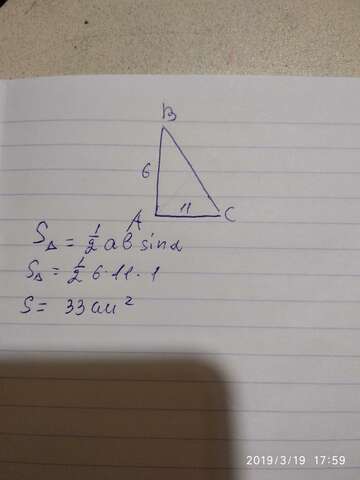 B
6
11
A
C
S△ = 1/2 ab sinα
S△ = 1/2 6·11·1
S = 33 см²
2019/3/19 17:59